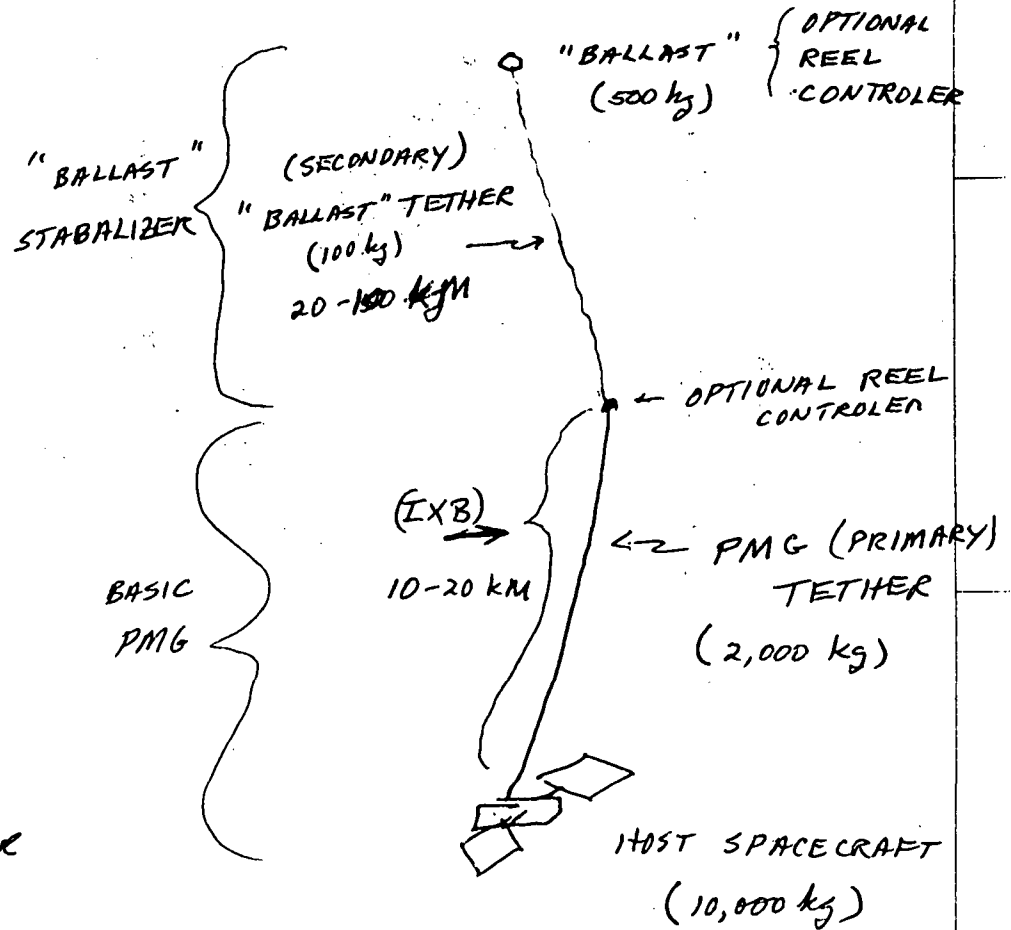 "BALLAST" { OPTIONAL
(500 kg) REEL
CONTROLER
"BALLAST"
STABALIZER
(SECONDARY)
"BALLAST" TETHER
(100 kg)
20-100 KM
← OPTIONAL REEL
CONTROLER
(IXB)
10-20 KM
BASIC
PMG
PMG (PRIMARY)
TETHER
(2,000 kg)
HOST SPACECRAFT
(10,000 kg)